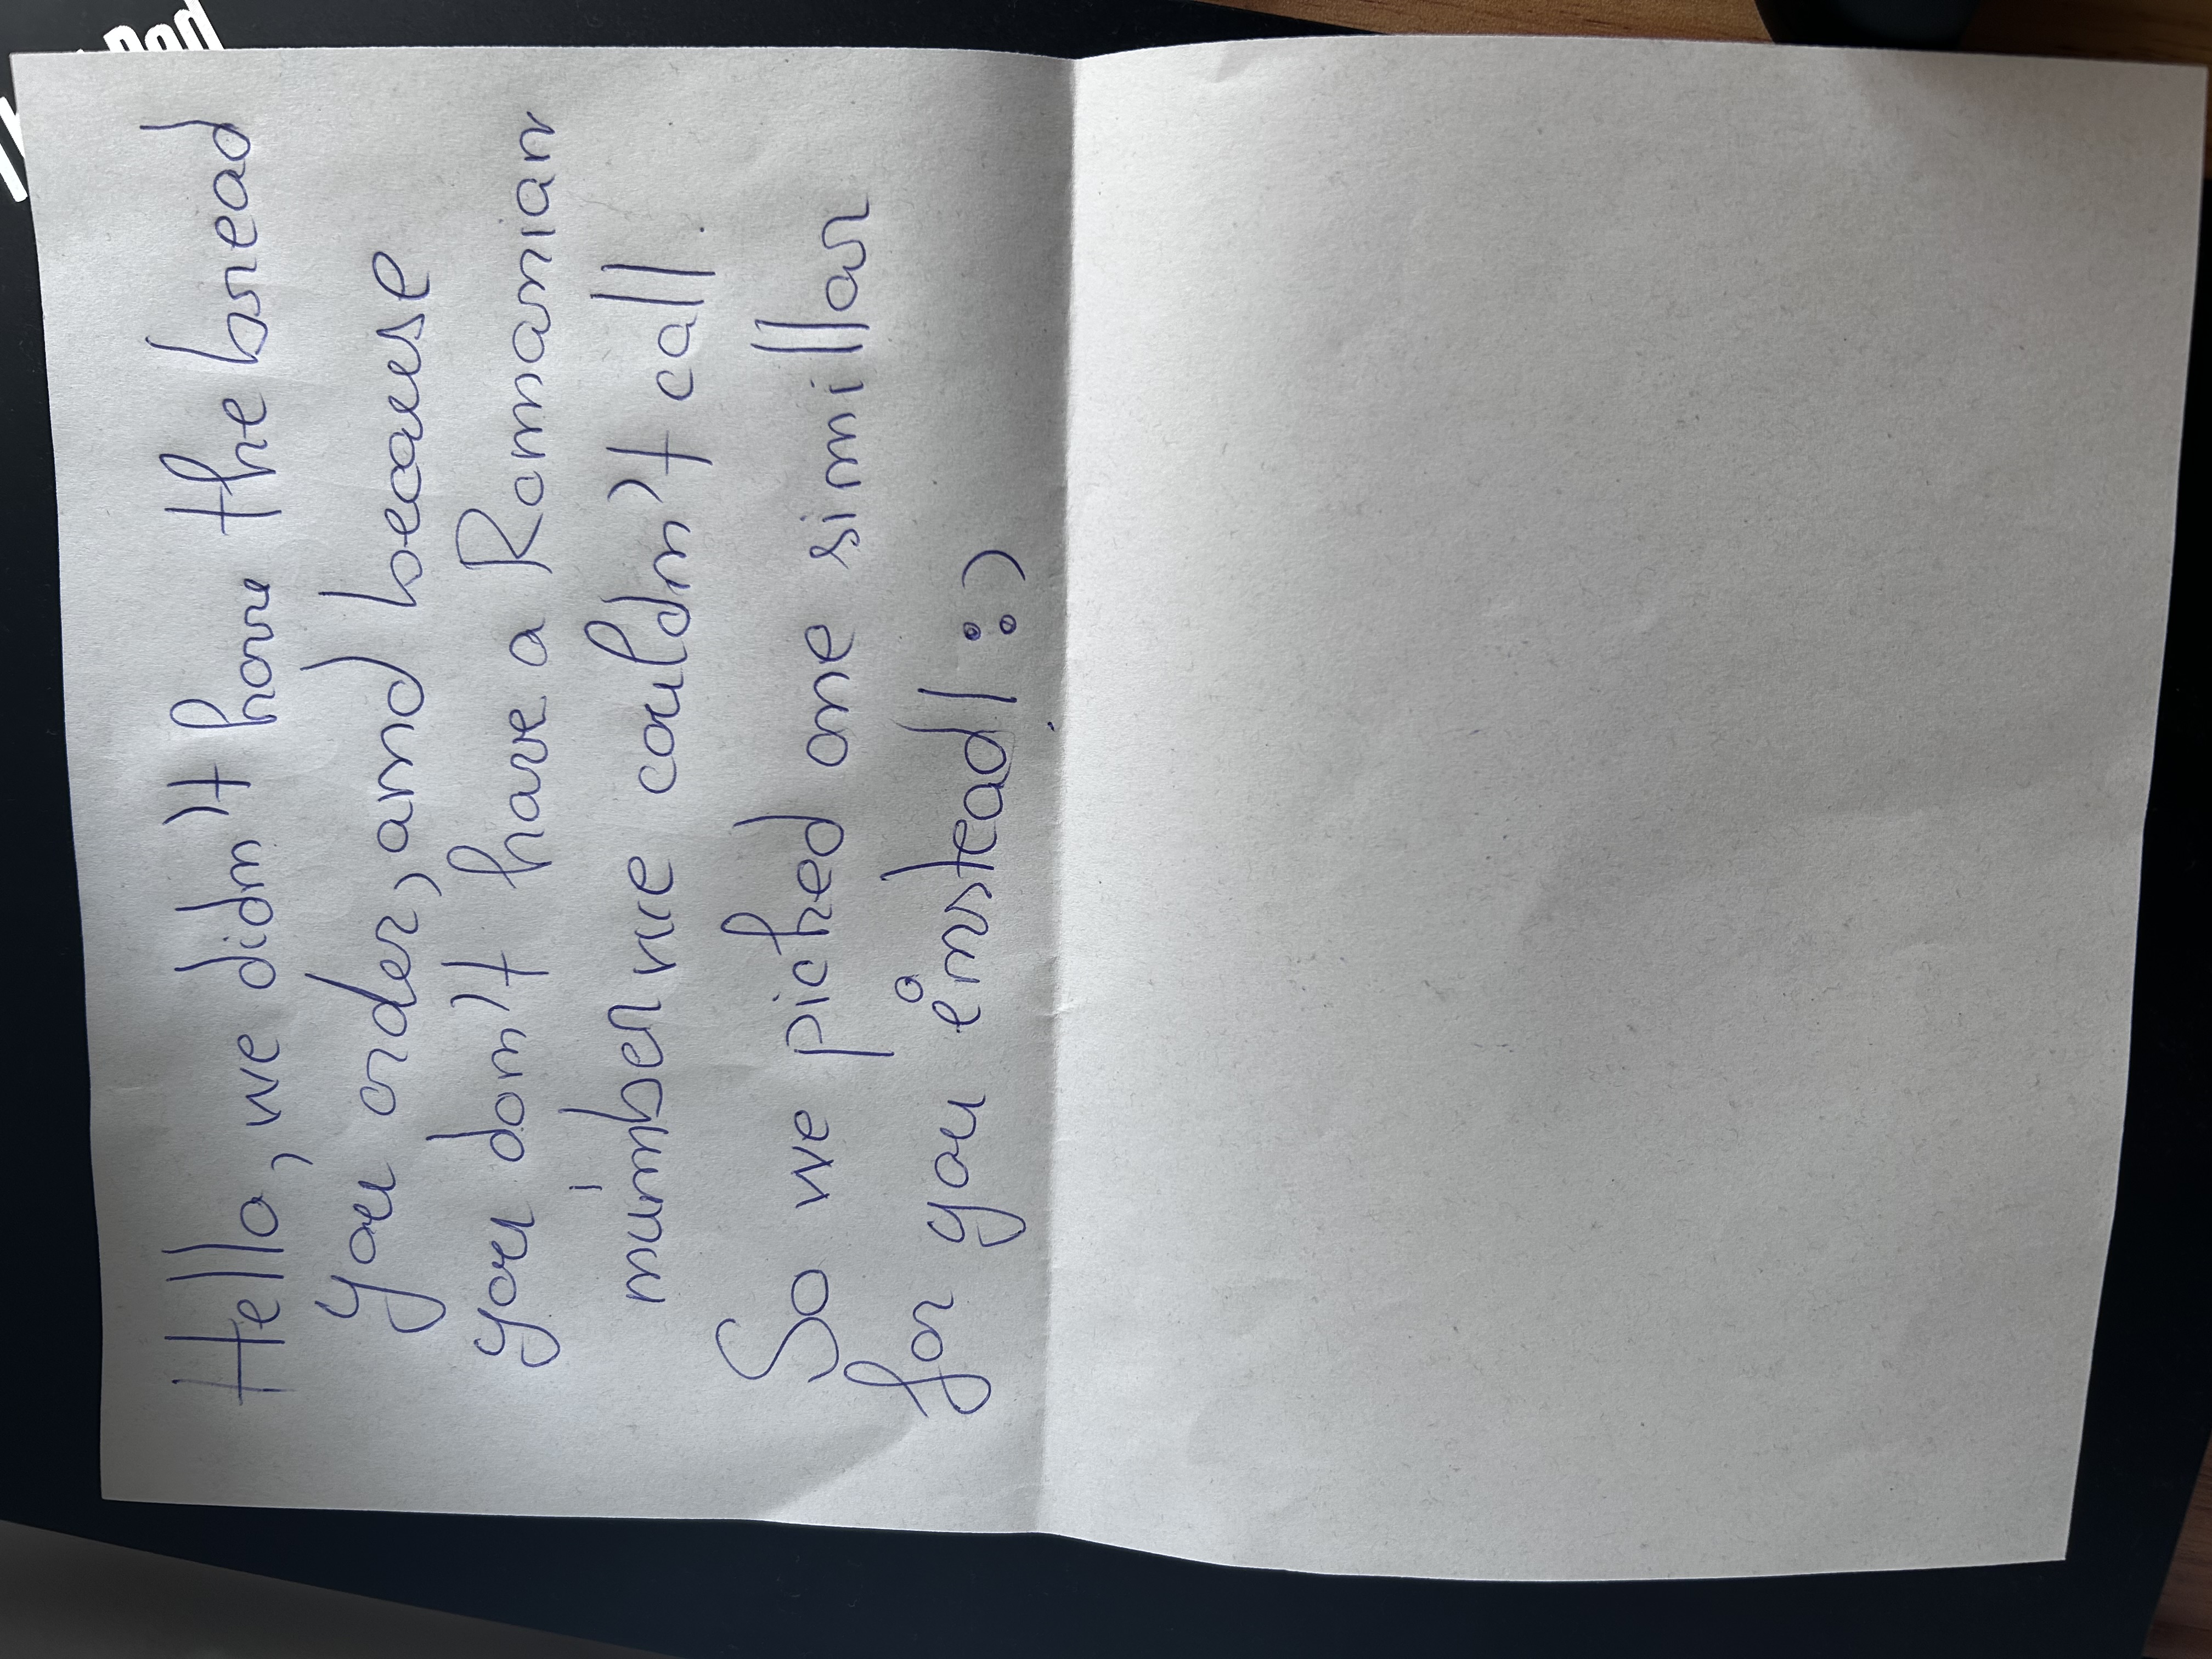 Hello, we didn't have the bread
you order, and because
you don't have a Romanian
number we couldn't call.
So we picked one simillar
for you instead! :)